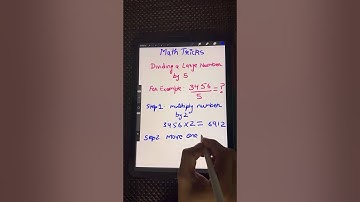 Math Tricks
Dividing a Large Number
by 5
For Example: 3456/5 = ?
Step1: multiply number
by 2
3456 x 2 = 6912
Step2: move one